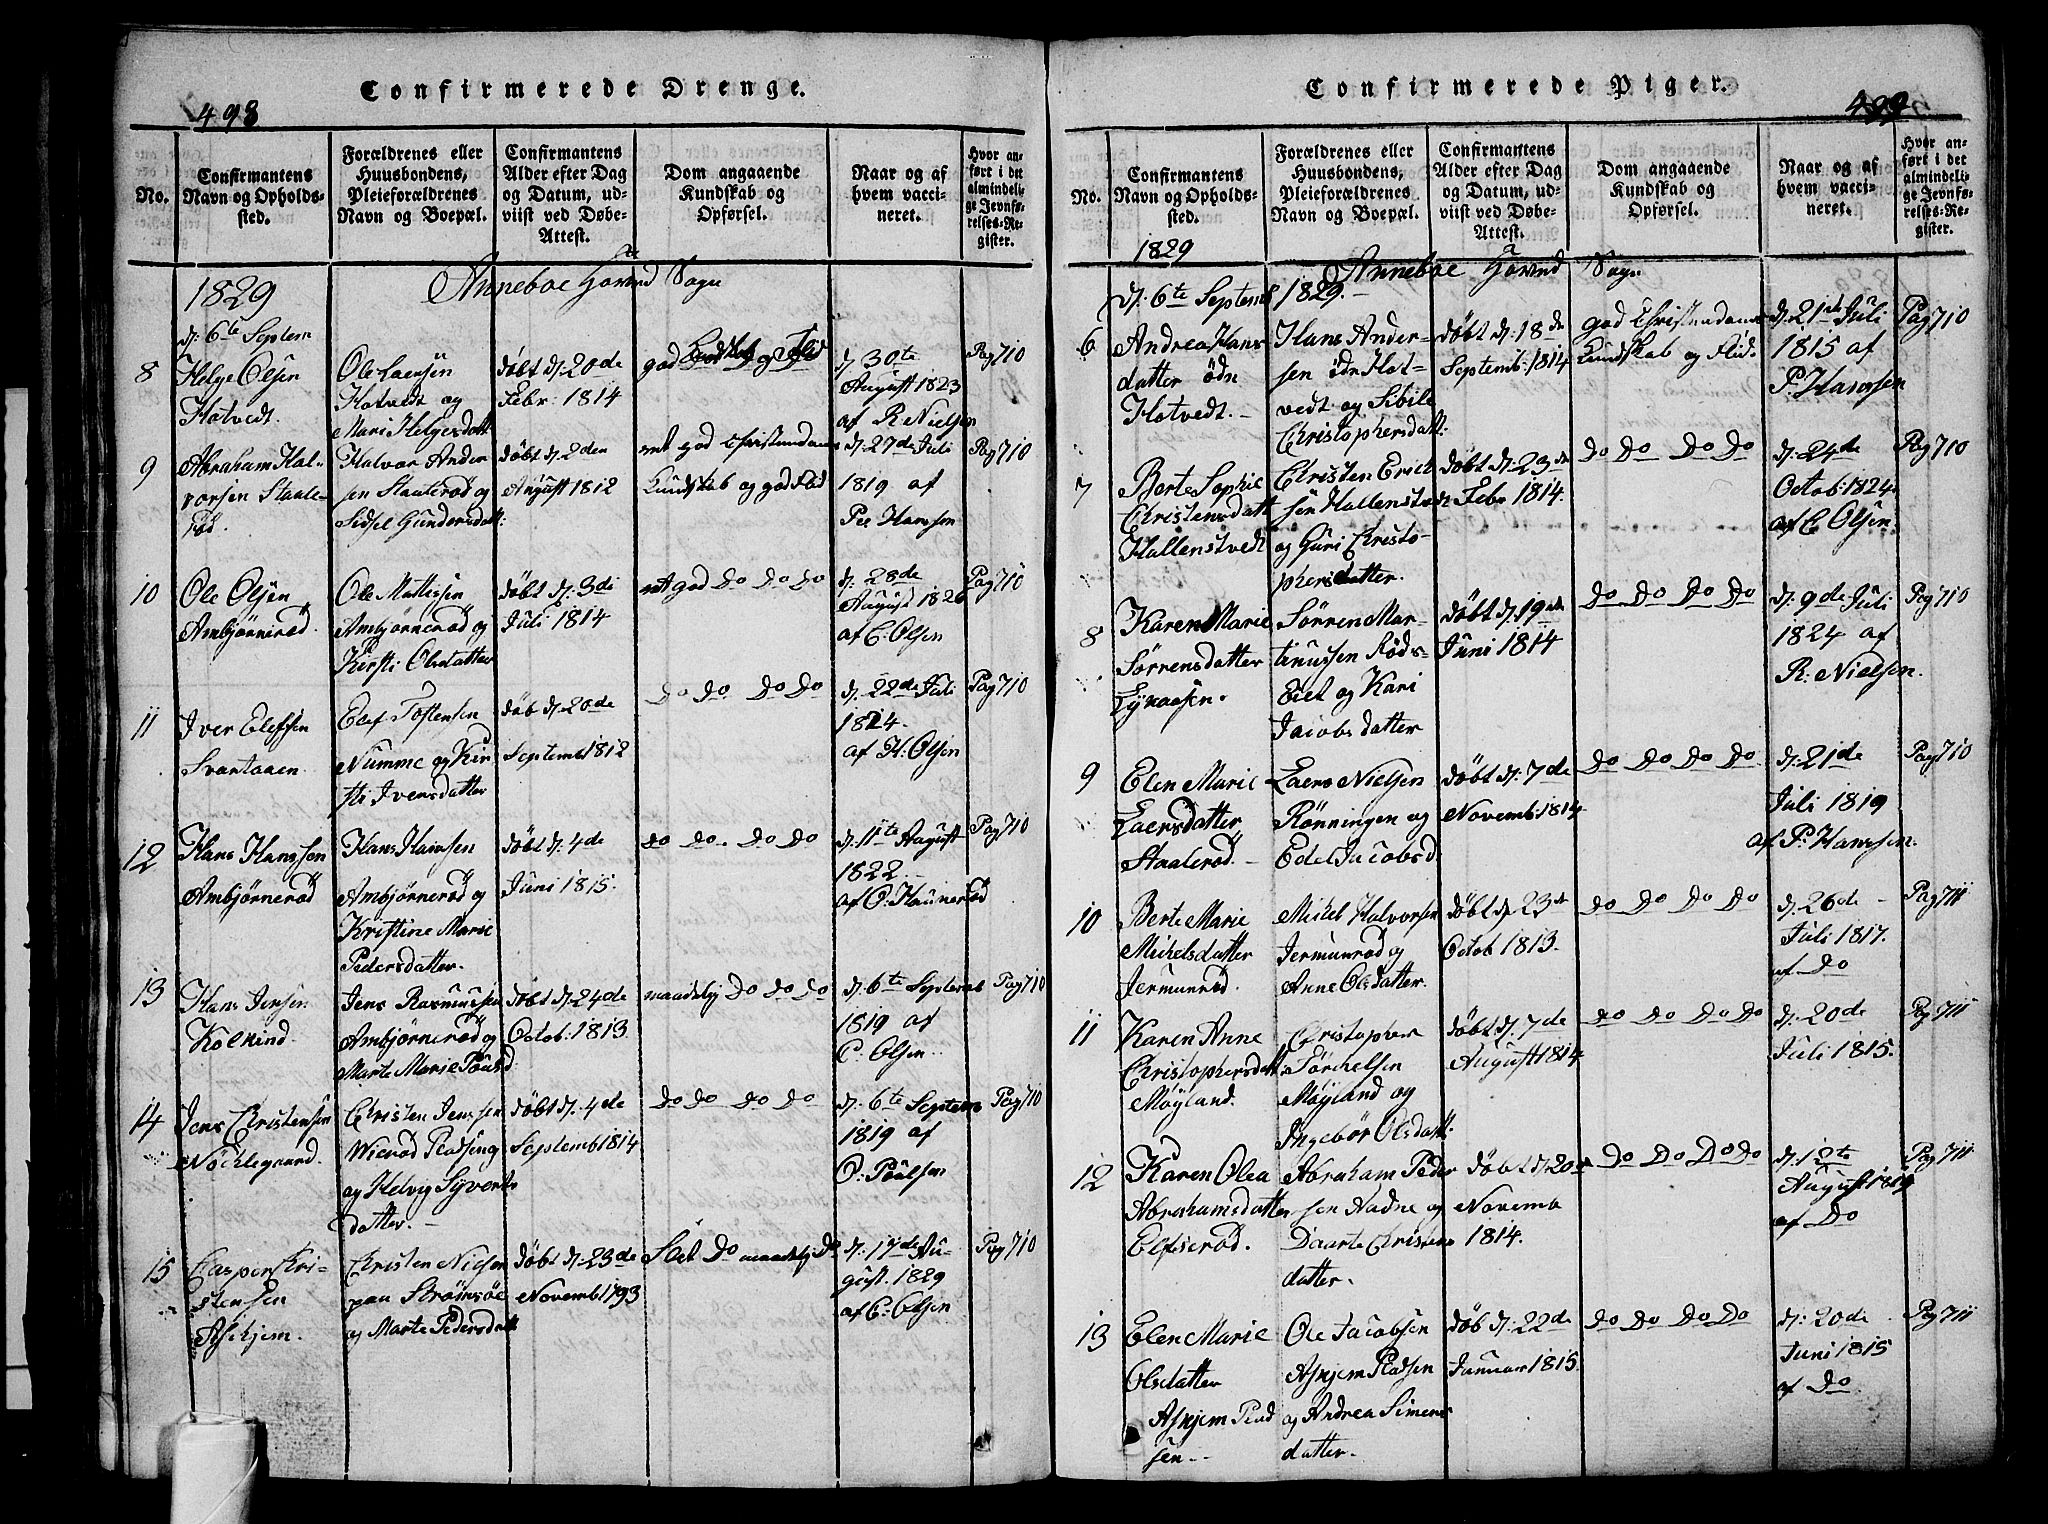 Confirmerede Drenge.
498
No.
Confirmantens
Navn og Opholds-
sted.
Forældrenes eller
Huusbondens,
Pleieforældrenes
Navn og Boepæl.
Confirmantens
Alder efter Dag
og Datum, ud-
viist ved Døbe-
Attest.
Dom angaaende
Kundskab og
Opførsel.
Naar og af
hvem vacci-
neret.
Hvor an-
ført i det
almindeli-
ge Jevnfø-
relses-Re-
gister.
1829
Anneboe Sogn
d: 6te Septem
8
Helge Olsen
Hotvedt.
Ole Laersen
Hotvedt og
Mari Helgersdatt
døbt d: 20de
Febr: 1814
god Kundskab og Flid
d: 30te
August 1823
af R Nielsen
Pag 710
9
Abraham Hal-
vorsen Staale-
rød.
Halvor Ander
sen Staalerød og
Sidsel Gundersdatt:
døbt d: 2den
August 1812
mt god Christendoms
Kundskab og god Flid
d: 27de Juli
1819 af
Pee Hanssen
Pag 710
10
Ole Olsen
Ambjørnerød.
Ole Mattissen
Ambjørnerød og
Kirsti Olsdatter
døbt d: 3di
Juli 1814
mt god Do Do Do
d: 28de
August 1826
af C. Olsen
Pag 710
11
Iver Elefsen
Svartaaen
Elef Tostensen
Numme og Kir
sti Iversdatter
døb d: 20de
Septemb 1812
Do Do Do Do
d: 22de Juli
1824.
af H: Olsen
Pag 710
12
Hans Hanssen
Ambjørnerød
Hans Hanssen
Ambjørnerød og
Kristine Marie
Pedersdatter.
døbt d: 4de
Juni 1815.
Do Do. Do Do
d: 11te August
1822.
af O: Haunerød
Pag 710
13
Hans Jensen
Kolkind.
Jens Rasmussen
Ambjørnerød og
Marte Marie Pouls d
døbt d: 24de
Octob: 1813
maadelig Do Do Do
d: 6te Septemb
1819 af
C. Olsen.
Pag 710
14
Jens Christensen
Nøcklegaard.
Christen Jenssen
Wierød Pladseing
og Helvig Syverts
datter.
døbt d: 4de
Septemb 1814
Do Do Do Do
d: 6te Septem
1819 af
O: Poulsen
Pag 710
15
Casper Kri-
stensen
Askjem.
Christen Nielsen
paa Strømsøe
og Marte Pedersdatt
døbt d: 23de
Novemb 1793
Slet Do maadelig Do
d: 17de Au-
gust. 1829
af C: Olsen
Pag 710
Confirmerede Piger.
499
No.
Confirmantens
Navn og Opholds-
sted.
Forældrenes eller
Huusbondens,
Pleieforældrenes
Navn og Boepæl.
Confirmantens
Alder efter Dag
og Datum, ud-
viist ved Døbe-
Attest.
Dom angaaende
Kundskab og
Opførsel.
Naar og af
hvem vacci-
neret.
Hvor an-
ført i det
almindeli-
ge Jevnfø-
relses-Re-
gister.
1829
Anneboe Sogn
d: 6te Septemb 1829.
6
Andrea Hans
datter ødn
Hotvedt.
Hans Ander-
sen ødn Hot-
vedt og Sibile
Christophersdatt:
døbt d: 18de
Septemb: 1814
god Christendoms
Kundskab og Flid.
d: 21de Juli
1815 af
P. Hanssen
Pag 710
7
Berte Sophie
Christensdatt
Hallenstvedt
Christen Erick
sen Hallenstvedt
og Guri Christo-
phersdatter.
døbt d: 23de
Febr 1814.
Do Do Do Do
d: 24de
Octob: 1824
af C Olsen.
Pag 710
8
Karen Marie
Sørrensdatter
Lynaasen.
Sørren Mar-
tinussen Røds-
Eiet og Kari
Jacobsdatter
døbt d: 19de
Juni 1814
Do Do Do Do
d: 9de Juli
1824 af
R. Nielsen.
Pag 710
9
Elen Marie
Laersdatter
Staalerød.
Laers Nielsen
Rønningen og
Edel Jacobsd
døbt d: 7de
Novemb: 1814
Do Do Do Do
d: 21de
Juli 1819
af P: Hanssen.
Pag 710
10
Berte Marie
Michelsdatter
Jermunrød.
Michel Halvorsen
Jermunrød og
Anne Olsdatter.
døbt d 23de
Octob 1813.
Do Do Do Do
d: 26de
Juli 1817.
af Do
Pag 711
11
Karen Anne
Christophersdatt
Møyland.
Cristopher
Torchelsen
Møyland og
Ingebør Olsdatt.
døbt d: 7de
August 1814
Do Do Do Do
d: 20de
Juli 1815.
Pag 711
12
Karen Olea
Abrahamsdatter
Elfiserød.
Abraham Peder
sen Nadne og
Daarte Christens
datter.
døbt d: 20de
Novemb
1814.
Do Do Do Do
d: 12te
August 1819
af Do
Pag 711
13
Elen Marie
Olsdatter
Askjem Plad
sen.
Ole Jacobsen
Askjem Pladsen
og Andrea Simens
datter.
døb d: 22de
Januar 1815.
Do Do Do Do
d: 20de
Juni 1815
af Do.
Pag 711